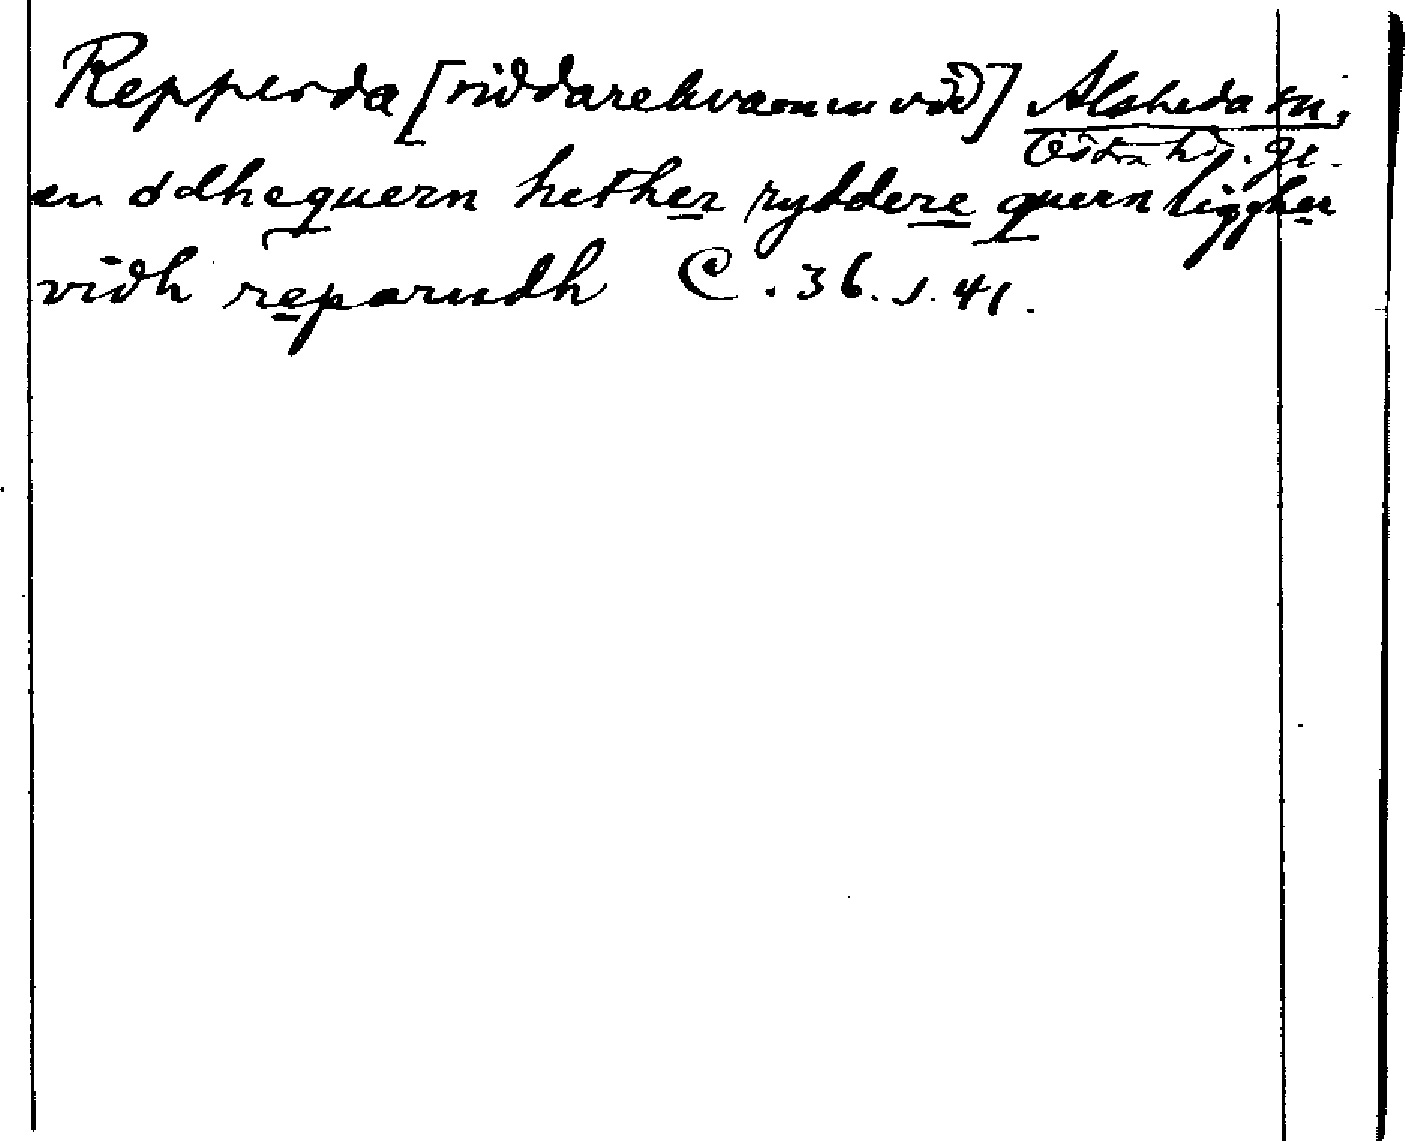 Repperda [riddarekvarnen vid] Alsheda sn,
Östra hd. Jl.
en ödhequern hether ryddere quern liggher
vidh reparudh C. 36. s. 41.